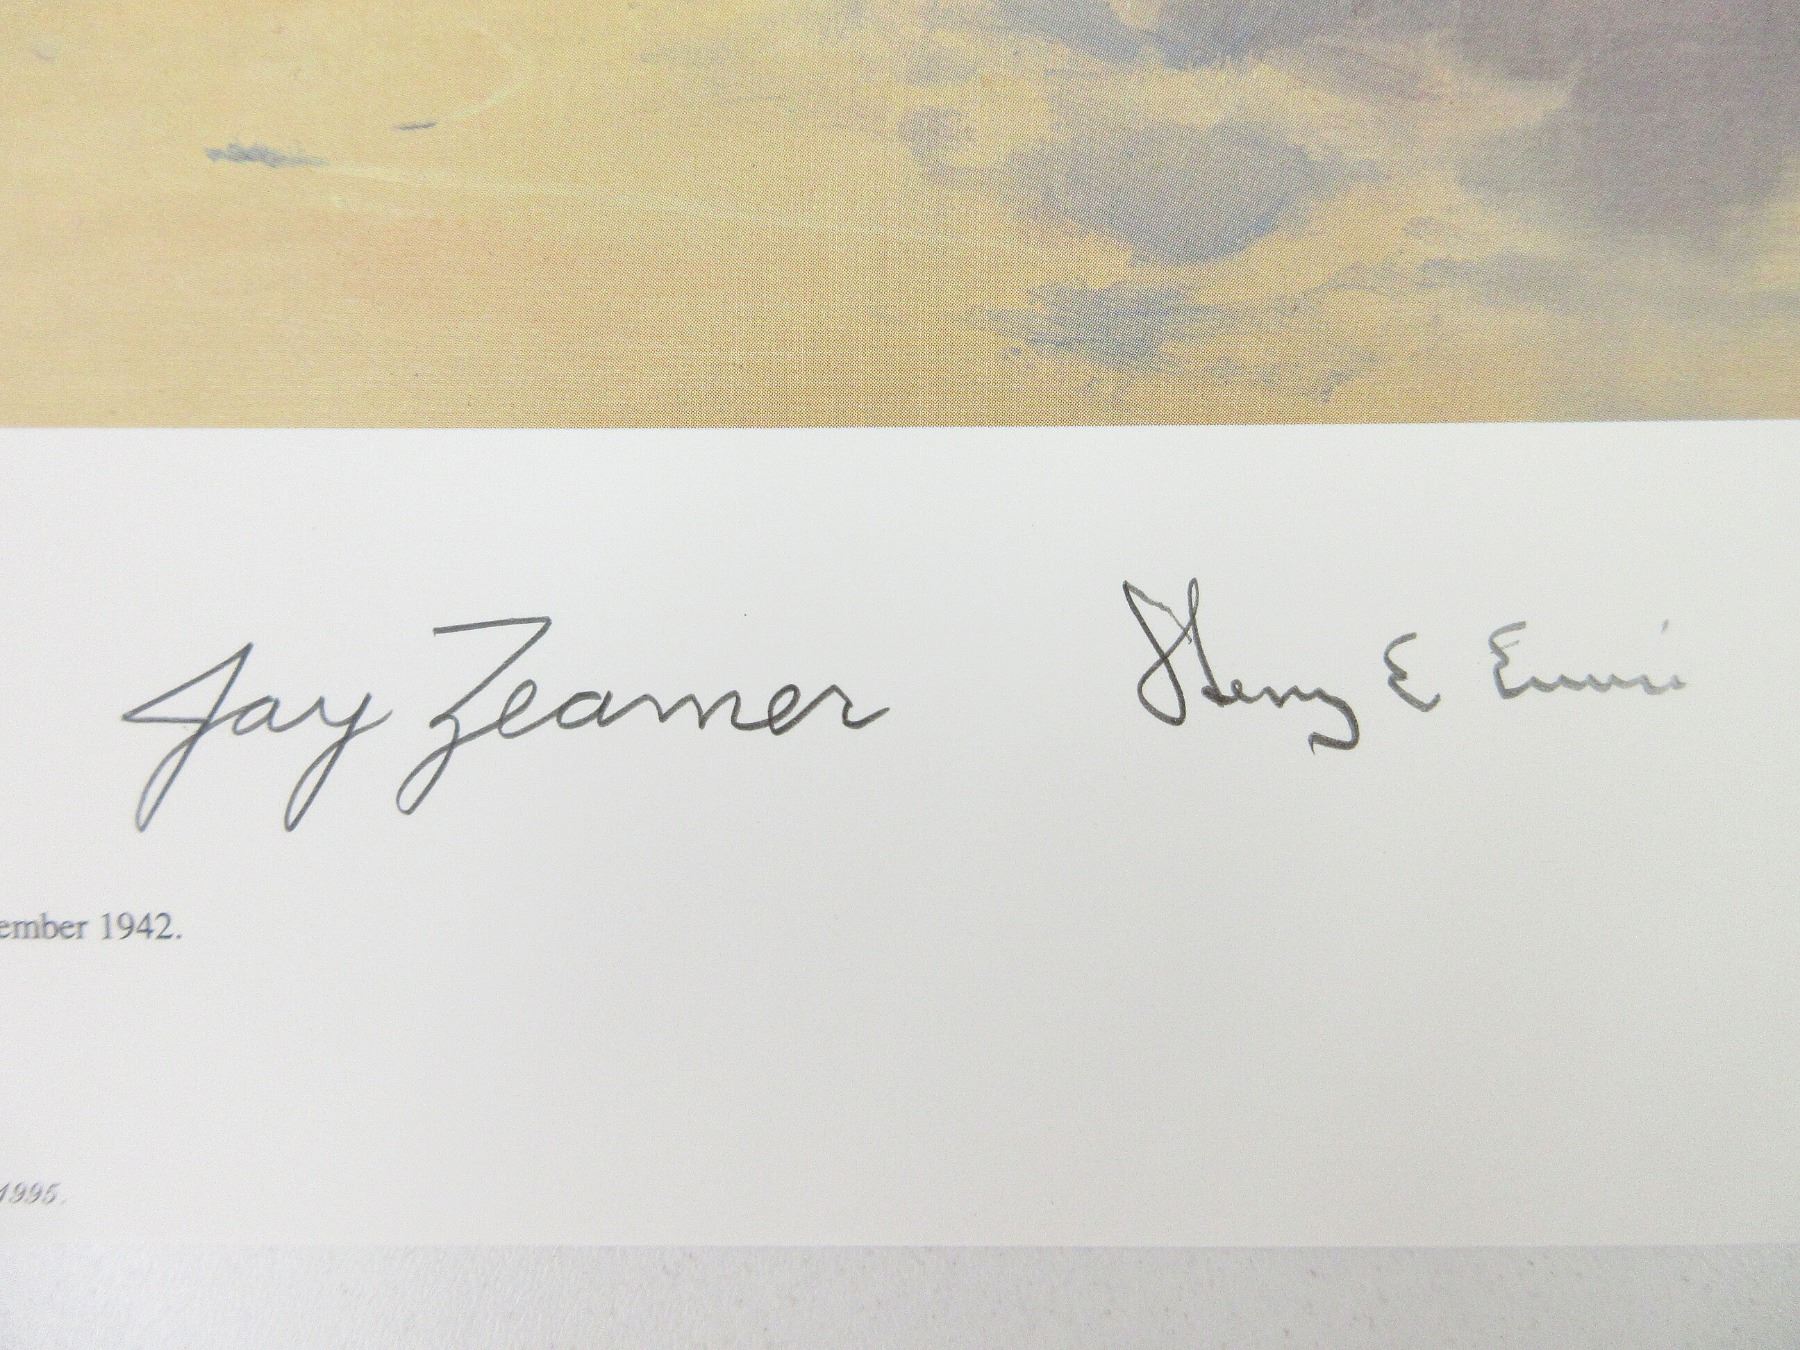 Jay Zeamer
Henry E Erwin
ember 1942.
1995.